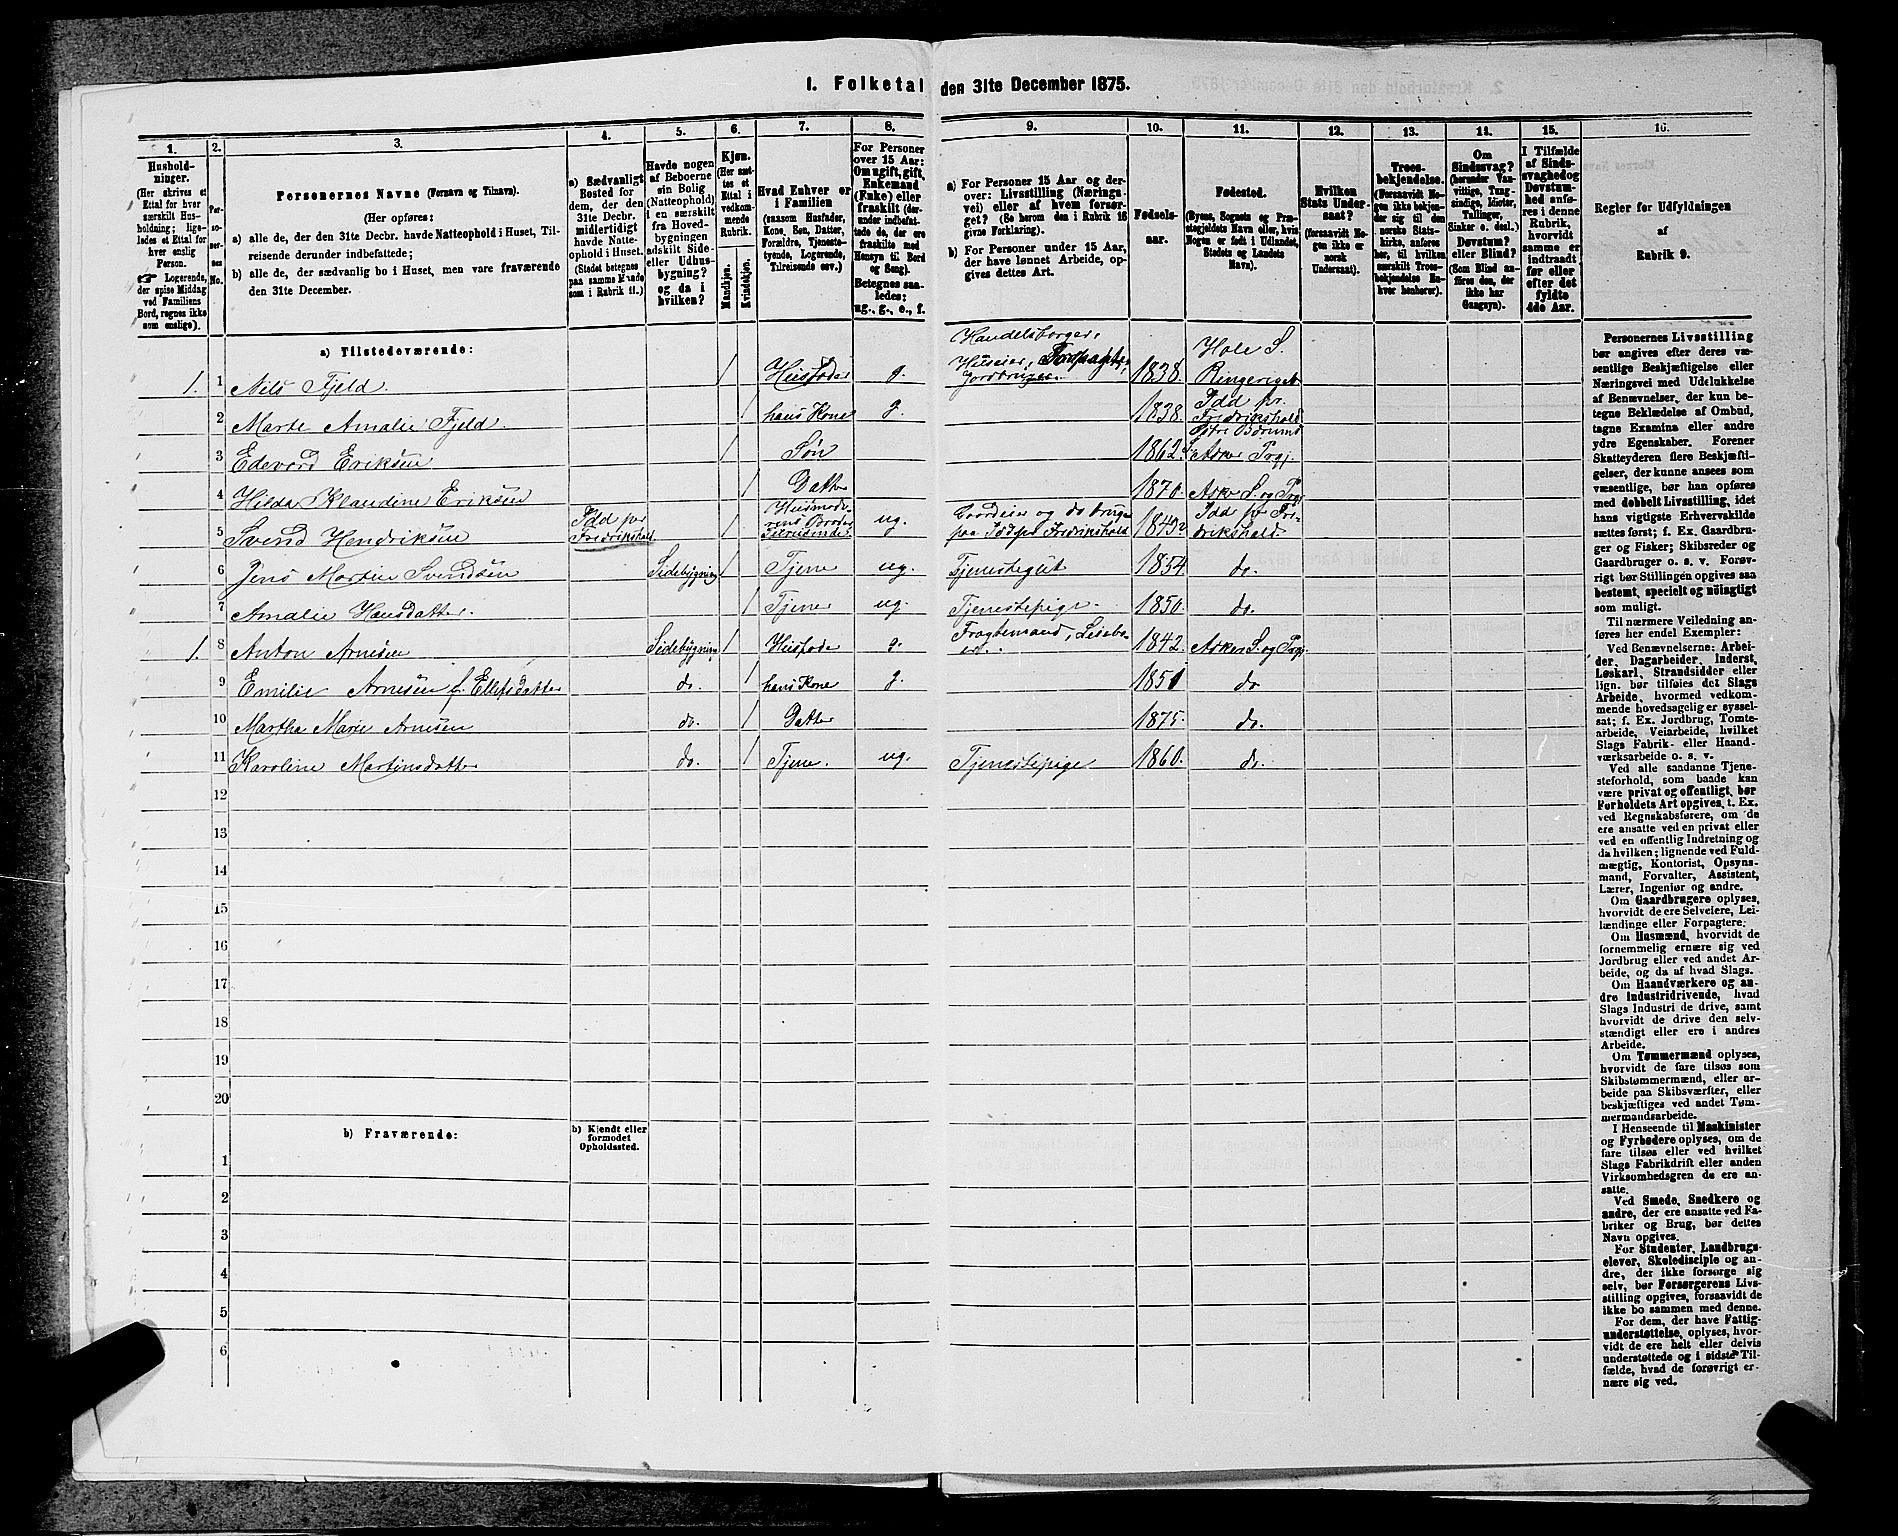 1. Folketal den 31te December 1875.
1. 2. 3. 4. 5. 6. 7. 8. 9. 10. 11. 12. 13. 14. 15. 16.
Husholdninger.
(Her skrives et
Ettal for hver
særskilt Husholdning;
ligeledes et Ettal for
hver enslig
Person.
☞ Logerende,
der spise Middag
ved Familiens
Bord, regnes ikke
som enslige).
Personernes No.
Personernes Navne (Fornavn og Tilnavn).
(Her opføres:
a) alle de, der den 31te Decbr. havde Natteophold i Huset, Tilreisende derunder indbefattede;
b) alle de, der sædvanlig bo i Huset, men vare fraværende
den 31te December.
a) Sædvanligt
Bosted for
dem, der den
31te Decbr.
midlertidigt
havde Natteophold i Huset.
(Stedet betegnes
paa samme Maade
som i Rubrik 11.)
Havde nogen
af Beboerne
sin Bolig
(Natteophold)
i en særskilt
fra Hovedbygningen
adskilt Side-
eller Udhusbygning?
og da i
hvilken?
Kjøn.
(Her sættes et
Ettal i
vedkommende
Rubrik.
Mandkjøn.
Kvindekjøn.
Hvad Enhver er
i Familien
(saasom Husfader,
Kone, Søn, Datter,
Forældre, Tjenestetyende, Logerende,
Tilreisende osv.)
For Personer
over 15 Aar:
Om ugift, gift,
Enkemand
(Enke) eller
fraskilt (derunder indbefattede, de, der ere
fraskilte med
Hensyn til Bord
og Seng).
Betegnes saaledes:
ug., g., e., f.
a) For Personer 15 Aar og derover: Livsstilling (Næringsvei) eller af hvem forsørget? (Se herom den i Rubrik 16
givne Forklaring).
b) For Personer under 15 Aar,
der have lønnet Arbeide, opgives dettes Art.
Fødselsaar.
Fødested.
(Byens, Sognets og Præstegjeldets Navn eller, hvis
Nogen er født i Udlandet,
Stedets og Landets
Navn).
Hvilken
Stats Undersaat?
(forsaavidt Nogen ikke er
norsk
Undersaat).
Troesbekjendelse.
(Forsaavidt Nogen ikke bekjender sig til den
norske Statskirke, anføres
her, til hvilken
særskilt Troesbekjendelse Enhver henhører).
Om
Sindssvag?
(herunder Vanvittige, Tungsindige, Idioter,
Tullinger,
Sinker o. desl.)
Døvstum?
eller Blind?
(Som Blind anføres den, der
ikke har
Gangsyn).
I Tilfælde
af Sindssvaghed og
Døvstumhed anføres i denne
Rubrik,
hvorvidt
samme er
indtraadt
før eller
efter det
fyldte
4de Aar.
Regler for Udfyldningen
af
Rubrik 9.
a) Tilstedeværende:
1. 1 Nils Fjeld 1 Husfader g. Handelsborger, Huseier, Jordbruger 1838. Hole S. Ringeriget
2 Marte Amalie Fjeld. 1 hans Kone g. 1838. Idd pr. Fredrikshald
3 Edevard Eriksen 1 Søn 1862. Østre Bærums S. Asker Prgj.
4 Hilda Klaudine Eriksen 1 Datter 1870. Asker S. og Prgj
5 Svend Hendriksen Idd pr Fredrikshald 1 Husmoderens Broder Tilreisende ug. Gaardeier og do bruger paa Idd pr Fredrikshald 1849 Idd pr Fredrikshald.
6 Jens Martin Svendsen Sidebygning 1 Tjener ug. Tjenestegut 1854 do.
7 Amalie Hansdatter. 1 Tjener ug. Tjenestepige. 1850. do.
1. 8 Anton Arnesen Sidebygning 1 Husfader g. Fragtemand, Leieboer. 1842. Asker S. og Prgj.
9 Emilie Arnesen f. Ellefsdatter do. 1 hans Kone g. 1851 do
10 Martha Marie Arnesen do. 1 Datter 1875. do.
11 Karoline Martinsdatter do. 1 Tjener. ug. Tjenestepige 1860. do.
12
13
14
15
16
17
18
19
20
b) Fraværende: b) Kjendt eller
formodet
Opholdssted.
1
2
3
4
5
6
Personernes Livsstilling
bør angives efter deres væsentlige Beskjæftigelse eller
Næringsvei med Udelukkelse
af Benævnelser, der kun betegne Beklædelse af Ombud,
tagne Examina eller andre
ydre Egenskaber. Forener
Skatteyderen flere Beskjæftigelser, der kunne ansees som
væsentlige, bør han opføres
med dobbelt Livsstilling, idet
hans vigtigste Erhvervskilde
sættes først; f. Ex. Gaardbruger og Fisker; Skibsreder og
Gaardbruger o. s. v. Forøvrigt bør Stillingen opgives saa
bestemt, specielt og nøiagtigt
som muligt.
Til nærmere Veiledning anføres her endel Exempler:
Ved Benævnelserne: Arbeider, Dagarbeider, Inderst,
Løskarl, Strandsidder eller
lign. bør tilføies det Slags
Arbeide, hvormed vedkommende hovedsagelig er sysselsat; f. Ex. Jordbrug, Tomtearbeide, Veiarbeide, hvilket
Slags Fabrik- eller Haandværksarbeide o. s. v.
Ved alle saadanne Tjenesteforhold, som baade kan
være privat og offentligt, bør
Forholdets Art opgives, t. Ex.
ved Regnskabsførere, om de
ere ansatte ved en privat eller
ved en offentlig Indretning og
da hvilken; lignende ved Fuldmægtig, Kontorist, Opsynsmand, Forvalter, Assistent,
Lærer, Ingeniør og andre.
Om Gaardbrugere oplyses,
hvorvidt de ere Selveiere, Leilændinge eller Forpagtere.
Om Husmænd, hvorvidt de
fornemmelig ernære sig ved
Jordbrug eller ved andet Arbeide, og da af hvad Slags.
Om Haandværkere og andre Industridrivende, hvad
Slags Industri de drive, samt
hvorvidt de drive den selvstændigt eller ere i andres
Arbeide.
Om Tømmermænd oplyses,
hvorvidt de fare tilsøs som
Skibstømmermænd, eller arbeide paa Skibsværfter, eller
beskjæftiges ved andet Tømmermandsarbeide.
I Henseende til Maskinister
og Fyrbødere oplyses, om de
fare tilsøs eller ved hvilket
Slags Fabrikdrift eller anden
Virksomhedsgren de ere ansatte.
Ved Smede, Snedkere og
andre, der ere ansatte ved Fabriker og Brug, bør dettes
Navn opgives.
For Studenter, Landbrugselever, Skoledisciple og andre, der ikke forsørge sig
selv, bør Forsørgerens Livsstilling opgives, forsaavidt de
ikke bo sammen med denne.
For dem, der have Fattigunderstøttelse, oplyses, hvorvidt de ere helt eller delvis
understøttede og i sidste Tilfælde, hvad de forøvrigt ernære sig ved.